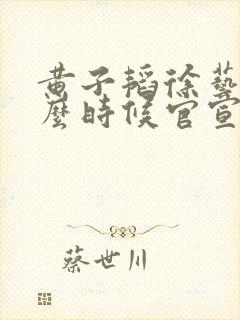 黄子韬徐藝
麼時候官宣
蔡世川